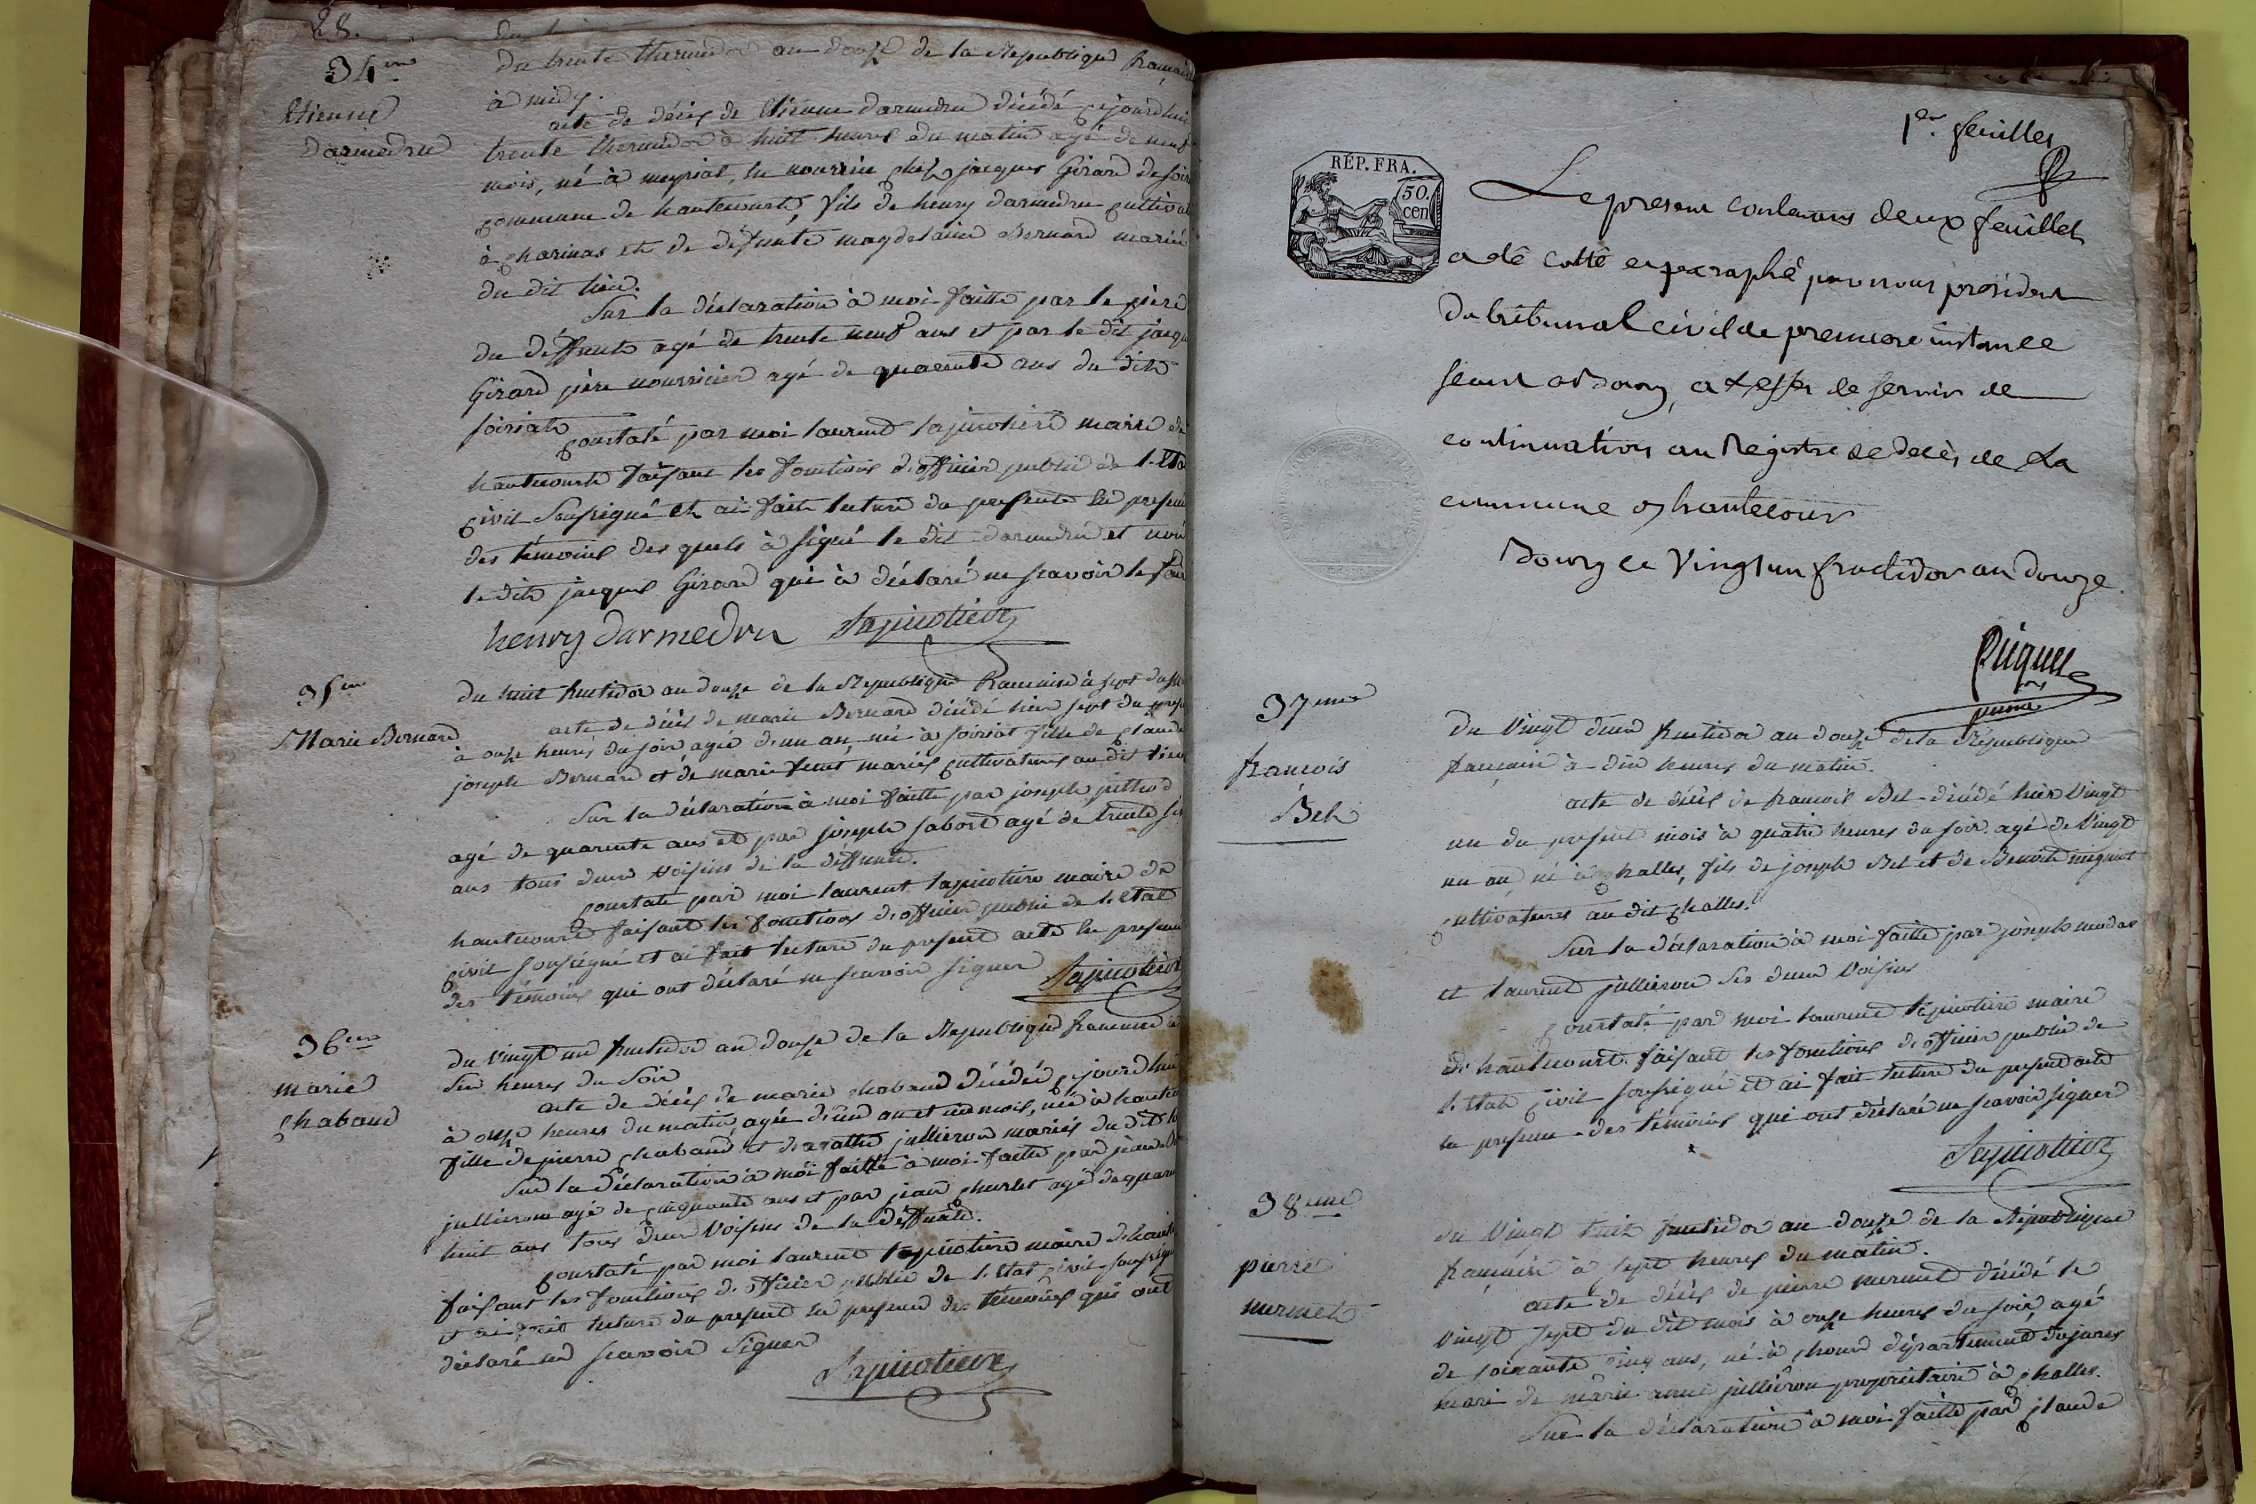 28.
34me
Etienne
Darmedru
du trente thermidor an douze de la République françai
à midy.
acte de décès de Etienne darmedru décédé cejourdhui
trente thermidor à huit heures du matin agé de neuf
mois, né à meyriat, en nourrice chez jacques Girard de soiri
commune de hautecourt, fils de henry darmedru cultivat
à charinas et de défunte magdelaine Bernard mariés
du dit lieu.
Sur la déclaration à moi faitte par le père
du déffunt agé de trente neuf ans et par le dit jacqu
Girard père nourricier agé de quarente ans du dit
soiriat
constaté par moi laurent lapicotiere maire de
hautecourt faisant les fonctions d'officier public de l'Eta
civil soussigné et ai fait lecture du present en presen
des témoins des quels à signé le dit darmedru et non
le dit jacques Girard qui à déclaré ne scavoir le fair
henry darmedru Lapicotiere
35me
Marie Bernard
du huit fructidor an douze de la République francaise à sept du
acte de décès de marie Bernard décédé hier sept du
à onze heures du soir agée d'un an, née à soiriat fille de claude
joseph Bernard et de marie mariés cultivateurs au dit lieu
Sur la déclaration à moi faitte par joseph
agé de quarente ans et par joseph sabord agé de trente
ans tous deux voisins de la déffunte.
constaté par moi laurent lapicotiere maire de
hautecourt faisant les fonctions d'officier public de l'etat
civil soussigné et ai fait lecture du present acte en presen
des témoins qui ont déclaré ne scavoir signer Lapicotiere
36me
marie
chabaud
du vingt un fructidor an douze de la République francaise à
six heures du soir
acte de décès de marie chabaud décédée cejourdhui
à onze heures du matin, agée d'un an et un mois, née à hautec
fille de pierre chabaud et de jullieron mariés du dit
Sur la déclaration à moi faitte à moi faitte par
jullieron agé de cinquante ans et par jean churlet agé de quaren
huit ans tous deux voisins de la déffunte.
constaté par moi laurent lapicotiere maire de haute
faisant les fonctions d'officier public de l'etat civil soussigné
et ai fait lecture du present en presence des témoins qui ont
déclaré ne scavoir signer
Lapicotiere
1er feuillet
RÉP. FRA.
50.
cen
Le present contenant deux feuillets
a été cotté et paraphé par nous président
du tribunal civil de premiere instance
séant a Bourg, a l'effet de servir de
continuation au Registre de décès de la
commune d'hautecour
Bourg ce vingt un fructidor an douze
Picquet
37eme
francois
Bel
du vingt deux fructidor an douze de la République
française à dix heures du matin.
acte de décès de francois Bel décédé hier vingt
un du present mois à quatre heures du soir agé de vingt
un an, né à challes, fils de joseph Bel et de Benoite
cultivateurs au dit challes.
Sur la déclaration à moi faitte par joseph
et laurent jullieron ses deux voisins
constaté par moi laurent lapicotiere maire
de hautecourt faisant les fonctions d'officier public de
l'etat civil soussigné et ai fait lecture du present acte
en presence des témoins qui ont déclaré ne scavoir signer
Lapicotiere
38eme
pierre
mermet
du vingt huit fructidor an douze de la République
française à sept heures du matin.
acte de décès de pierre mermet décédé le
vingt sept du dit mois à onze heures du soir, agé
de soixante cinq ans, né à département du jura
mari de marie anne jullieron propriétaire à challes.
Sur la déclaration à moi faitte par claude